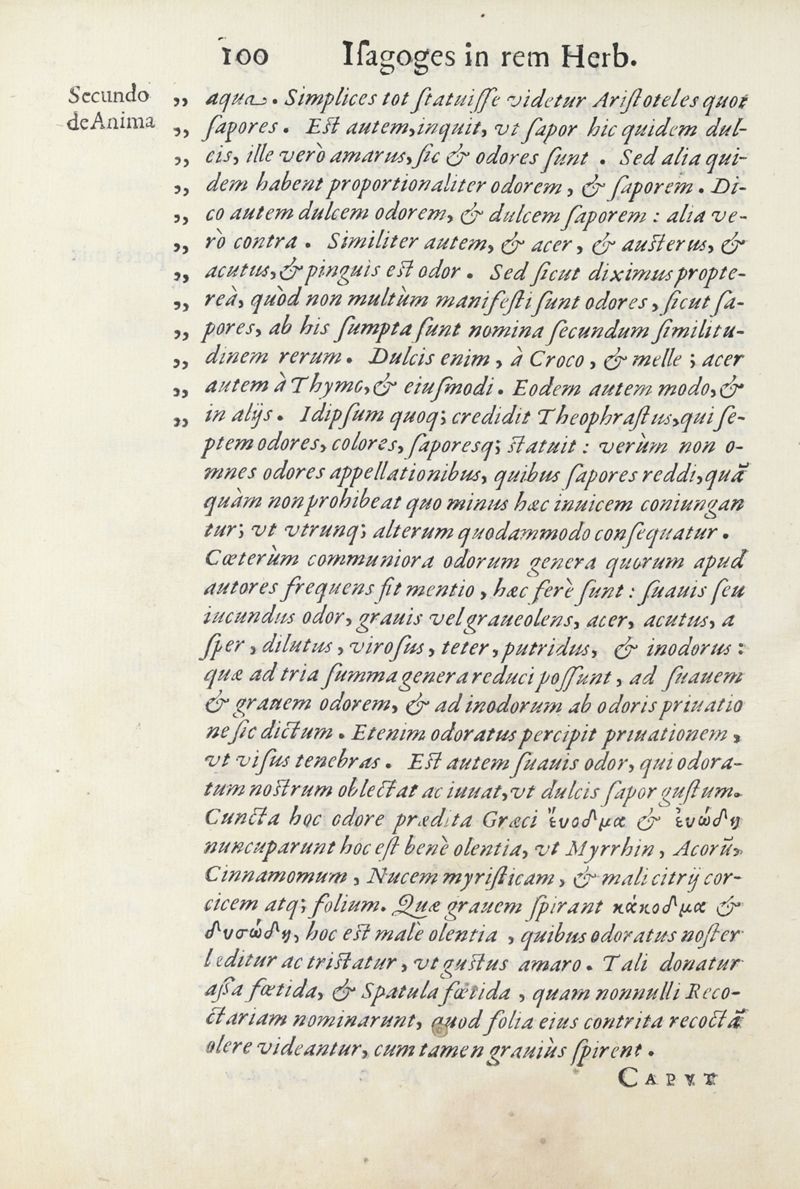 100 Iſagoges in rem Herb.
Secundo
de Anima
„ aqua. Simplices tot ſtatuiſſe videtur Ariſtoteles quot
„ ſapores. Eſt autem, inquit, vt ſapor hic quidem dul-
„ cis, ille verò amarus, ſic & odores ſunt. Sed alia qui-
„ dem habent proportionaliter odorem, & ſaporem. Di-
„ co autem dulcem odorem, & dulcem ſaporem: alia ve-
„ rò contra. Similiter autem, & acer, & auſterus, &
„ acutus, & pinguis eſt odor. Sed ſicut diximus propte-
„ reà, quòd non multùm manifeſti ſunt odores, ſicut ſa-
„ pores, ab his ſumpta ſunt nomina ſecundum ſimilitu-
„ dinem rerum. Dulcis enim, à Croco, & melle; acer
„ autem à Thymo, & eiuſmodi. Eodem autem modo, &
„ in alijs. Idipſum quoq; credidit Theophraſtus, qui ſe-
ptem odores, colores, ſaporesq; ſtatuit: verùm non o-
mnes odores appellationibus, quibus ſapores reddi, quã
quàm non prohibeat quo minus hæc inuicem coniungan
tur; vt vtrunq; alterum quodammodo conſequatur.
Cœterùm communiora odorum genera quorum apud
autores frequens fit mentio, hæc ferè ſunt: ſuauis ſeu
iucundus odor, grauis vel graueolens, acer, acutus, a
ſper, dilutus, viroſus, teter, putridus, & inodorus:
quæ ad tria ſumma genera reduci poſſunt, ad ſuauem
& grauem odorem, & ad inodorum ab odoris priuatio
ne ſic dictum. Etenim odoratus percipit priuationem,
vt viſus tenebras. Eſt autem ſuauis odor, qui odora-
tum noſtrum oblectat ac iuuat, vt dulcis ſapor guſtum.
Cuncta hoc odore prædita Græci ἔυοδμα & ἐυώδη
nuncuparunt hoc eſt benè olentia, vt Myrrhin, Acorũ,
Cinnamomum, Nucem myriſticam, & mali citrij cor-
cicem atq; folium. Quæ grauem ſpirant κάκοδμα &
δυσώδη, hoc eſt malè olentia, quibus odoratus noſter
leditur ac triſtatur, vt guſtus amaro. Tali donatur
aſſa fœtida, & Spatula fœtida, quam nonnulli Reco-
ctariam nominarunt, quod folia eius contrita recoctã
olere videantur, cum tamen grauiùs ſpirent.
CAPVT